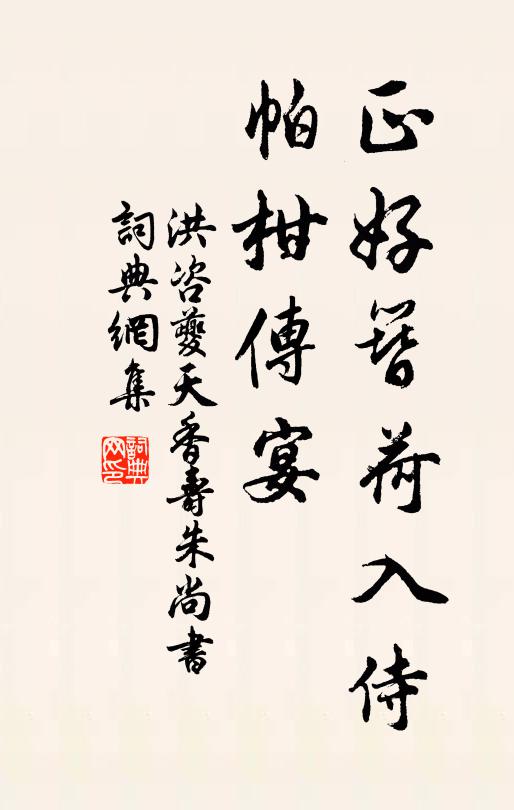 正好簪荷入侍
帕柑傳宴
洪咨夔天香壽朱尚書
詞典網集
詞典网印